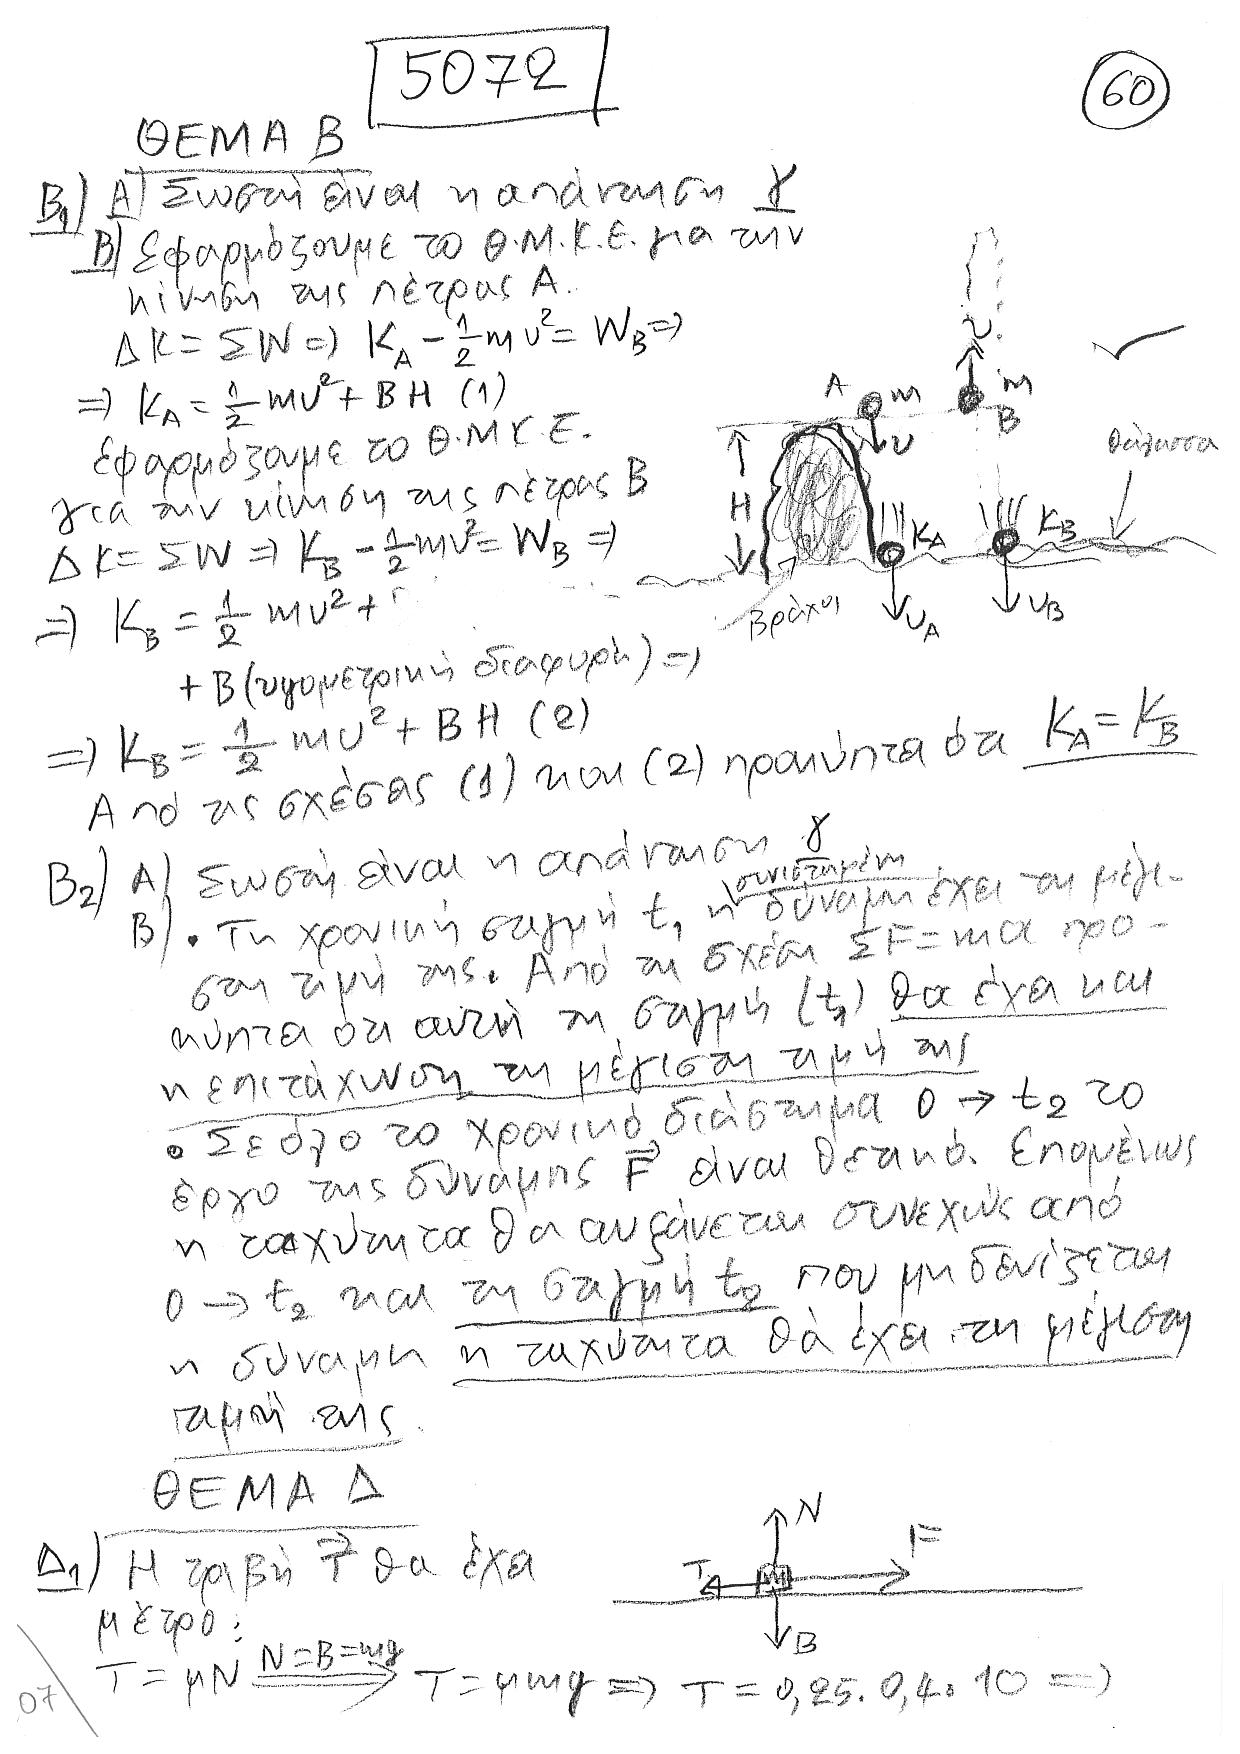 5072
60
ΘΕΜΑ Β
Β1) Α) Σωστή είναι η απάντηση γ
Β) Εφαρμόζουμε το Θ.Μ.Κ.Ε. για την
κίνηση της πέτρας Α.
ΔΚ = ΣW => K_A - 1/2 mυ² = W_B =>
=> K_A = 1/2 mυ² + BH (1)
Εφαρμόζουμε το Θ.Μ.Κ.Ε.
για την κίνηση της πέτρας Β
ΔΚ = ΣW => K_B - 1/2 mυ² = W_B =>
=> K_B = 1/2 mυ² +
+ B(υψομετρική διαφορά) =>
=> K_B = 1/2 mυ² + BH (2)
Από τις σχέσεις (1) και (2) προκύπτει ότι K_A = K_B
υ
A m
m
B
υ
H
θάλασσα
K_A
K_B
βράχος
υ_A
υ_B
Β2) Α) Σωστή είναι η απάντηση γ
συνισταμένη
Β) • Τη χρονική στιγμή t₁ η δύναμη έχει τη μέγι-
στη τιμή της. Από τη σχέση ΣF = mα προ-
κύπτει ότι αυτή τη στιγμή (t₁) θα έχει και
η επιτάχυνση τη μέγιστη τιμή της
• Σε όλο το χρονικό διάστημα 0 → t₂ το
έργο της δύναμης F⃗ είναι θετικό. Επομένως
η ταχύτητα θα αυξάνεται συνεχώς από
0 → t₂ και τη στιγμή t₂ που μηδενίζεται
η δύναμη η ταχύτητα θα έχει τη μέγιστη
τιμή της.
ΘΕΜΑ Δ
Δ1) Η τριβή T⃗ θα έχει
μέτρο:
N
F
T
m
B
T = μN N=B=mg ⟹ T = μmg => T = 0,25 · 0,4 · 10 =>
07